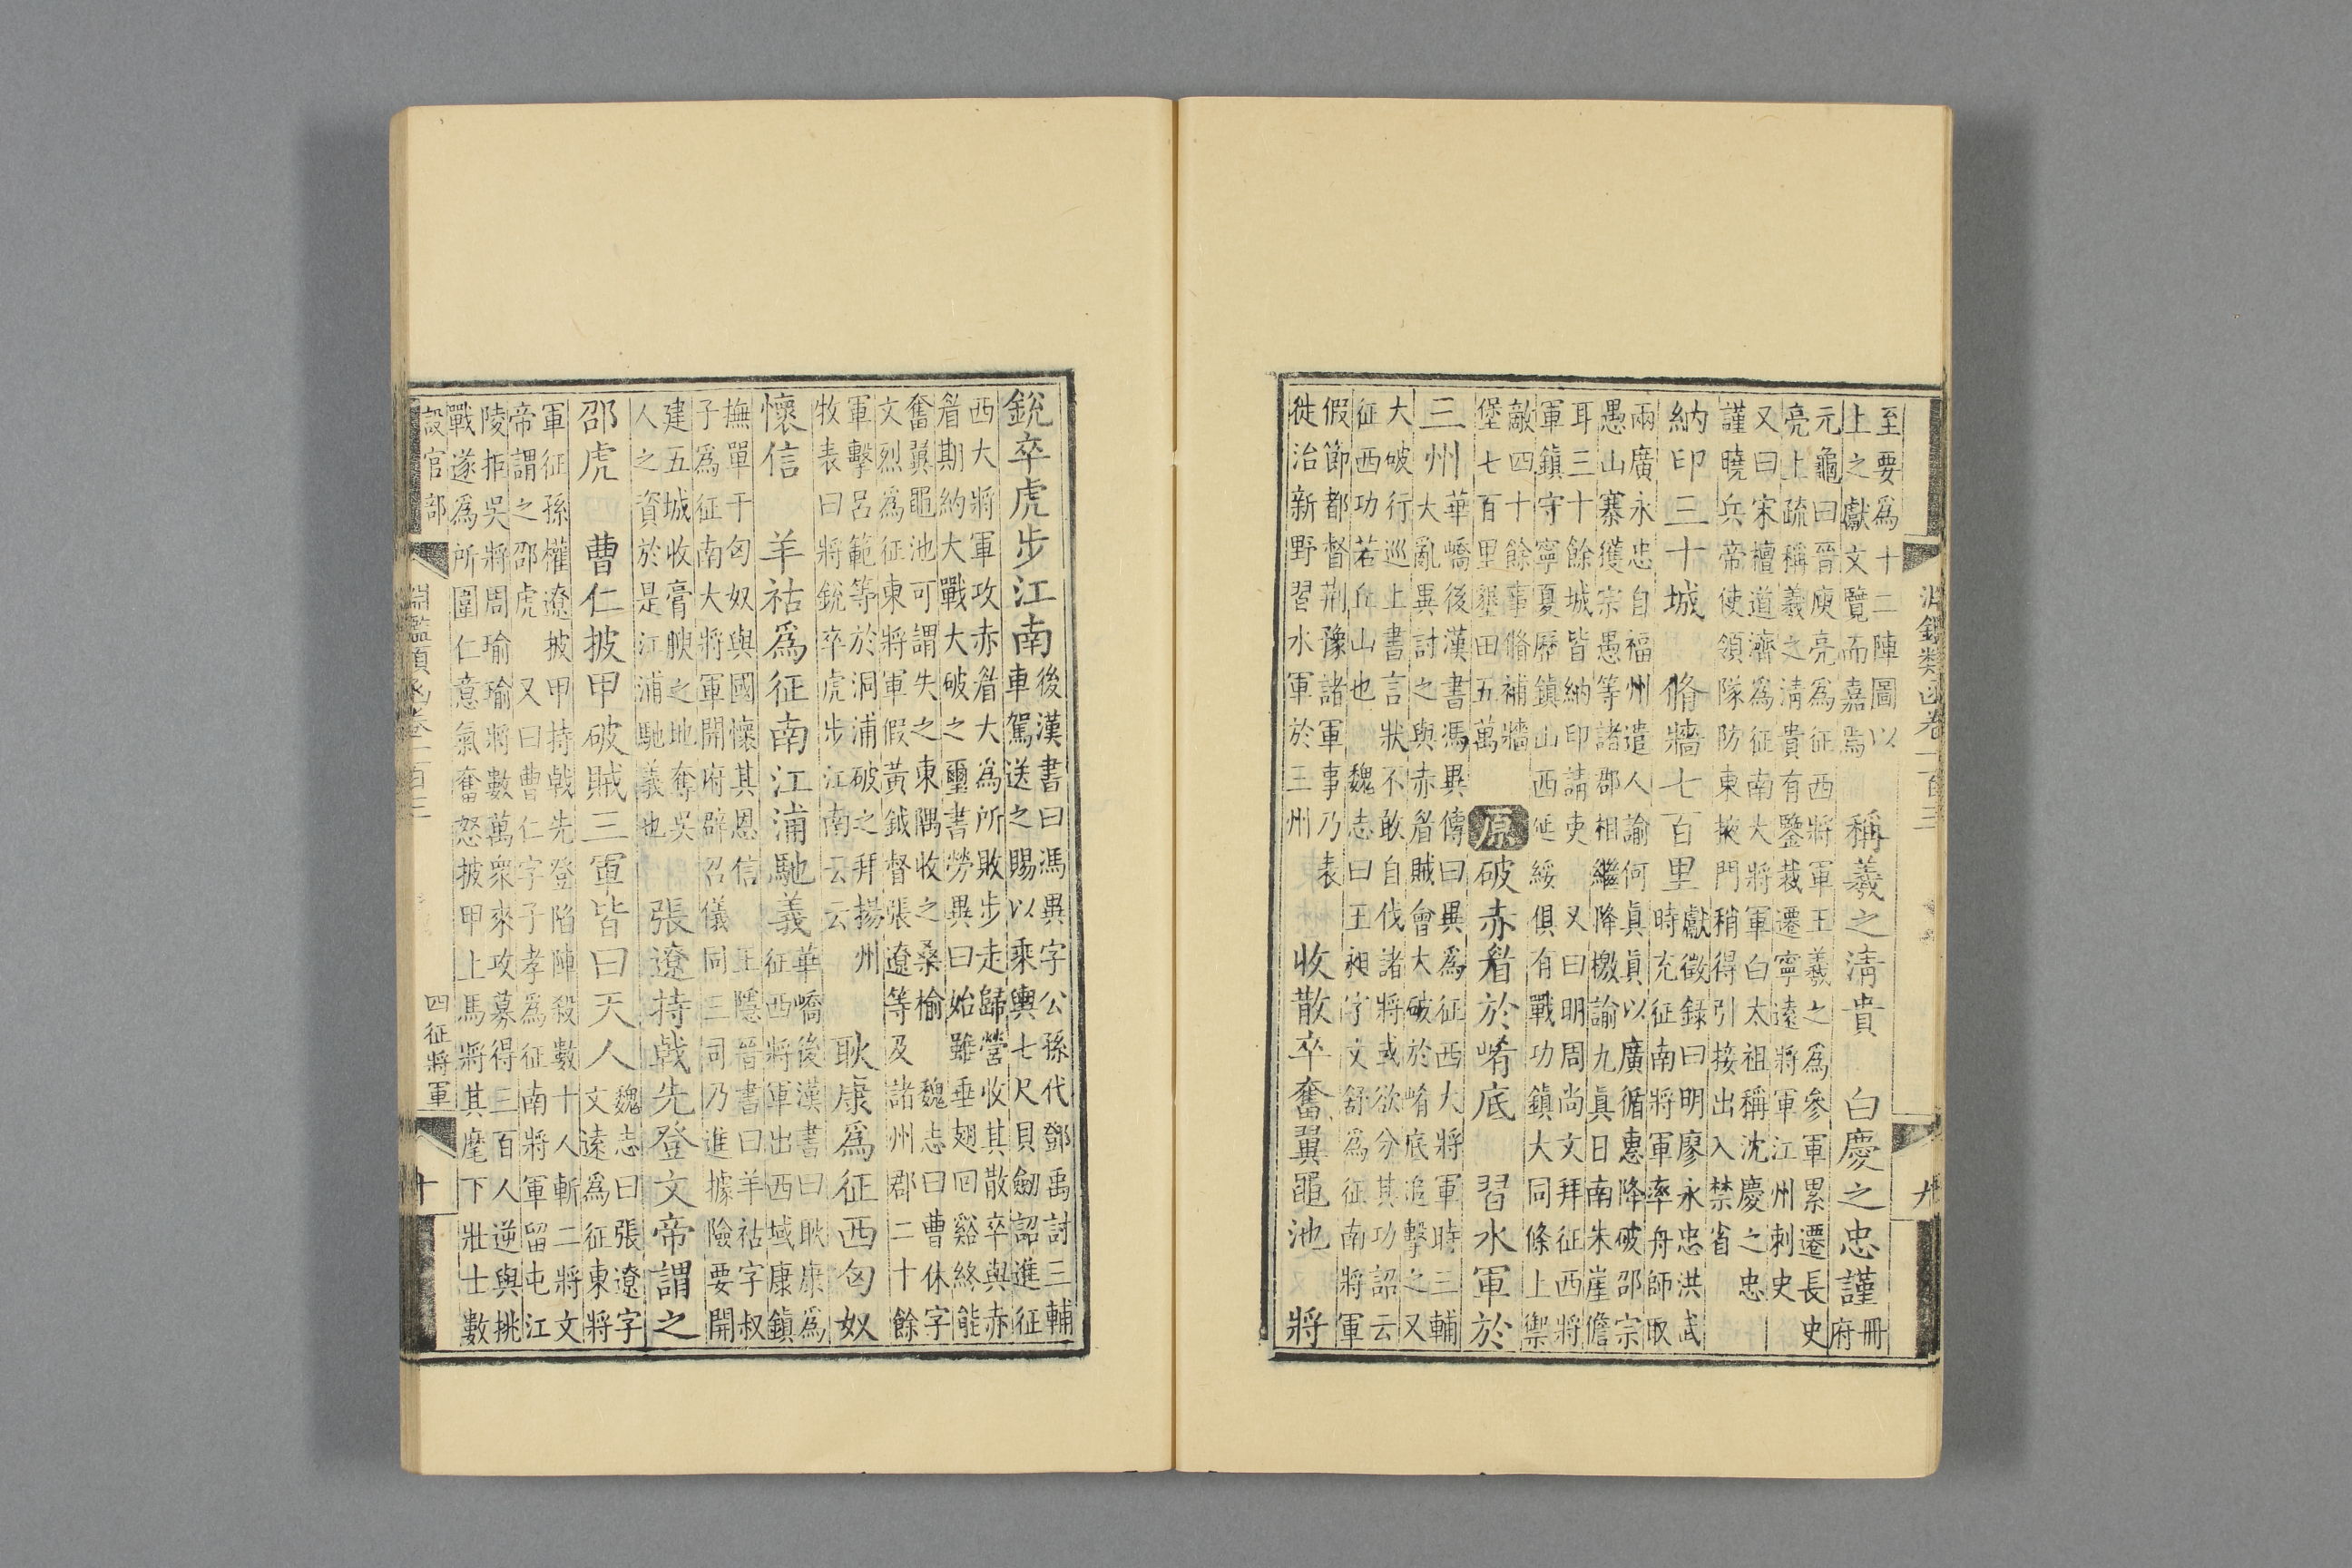 渊鑑类函卷一百三　九
至要爲十二陣圖以
上之獻文覽而嘉焉
稱羲之清貴　白慶之忠謹
冊
府
元龜曰晉庾亮爲征西將軍王羲之爲參軍累遷長史
亮上疏稱羲之清貴有鑒裁遷寧遠將軍江州刺史
又曰宋檀道濟爲征南大將軍白太祖稱沈慶之忠
謹曉兵帝使領隊防東掖門稍得引接出入禁省
納印三十城　脩牆七百里
獻徵録曰明廖永忠洪武
時充征南將軍率舟師取
兩廣永忠自福州遣人諭何真真以廣循惠降破邵宗
愚山寨獲宗愚等諸郡相繼降檄諭九真日南朱崖儋
耳三十餘城皆納印請吏　又曰明周尚文拜征西將
軍鎮守寧夏歷鎮山西延綏俱有戰功鎮大同條上禦
敵四十餘事脩補牆
堡七百里墾田五萬
原破赤眉於崤底　習水軍於
三州
華嶠後漢書馮異傳曰異爲征西大將軍時三輔
大亂異討之與赤眉賊會大破於崤底追擊之又
大破行巡上書言狀不敢自伐諸將或欲分其功詔云
征西功若丘山也　魏志曰王昶字文舒爲征南將軍
假節都督荆豫諸軍事乃表
徙治新野習水軍於三州
收散卒奮翼黽池　將
銳卒虎步江南
後漢書曰馮異字公孫代鄧禹討三輔
車駕送之賜以乘輿七尺貝劒詔進征
西大將軍攻赤眉大爲所敗步走歸營收其散卒與赤
眉期納大戰大破之璽書勞異曰始雖垂翅回谿終能
奮翼黽池可謂失之東隅收之桑榆　魏志曰曹休字
文烈爲征東將軍假黃鉞督張遼等及諸州郡二十餘
軍擊呂範等於洞浦破之拜揚州
牧表曰將銳卒虎步江南云云
耿康爲征西匈奴
懷信　羊祜爲征南江浦馳義
華嶠後漢書曰耿康爲
征西將軍出西域康鎮
撫單于匈奴與國懷其恩信　王隱晉書曰羊祜字叔
子爲征南大將軍開府辟召儀同三司乃進據險要開
建五城收膏腴之地奪吳
人之資於是江浦馳義也
張遼持戟先登文帝謂之
邵虎　曹仁披甲破賊三軍皆曰天人
魏志曰張遼字
文遠爲征東將
軍征孫權遼披甲持戟先登陷陣殺數十人斬二將文
帝謂之邵虎　又曰曹仁字子孝爲征南將軍留屯江
陵拒吳將周瑜瑜將數萬衆來攻募得三百人逆與挑
戰遂爲所圍仁意氣奮怒披甲上馬將其麾下壯士數
設官部　淵鑑類函卷一百三　四征將軍　十